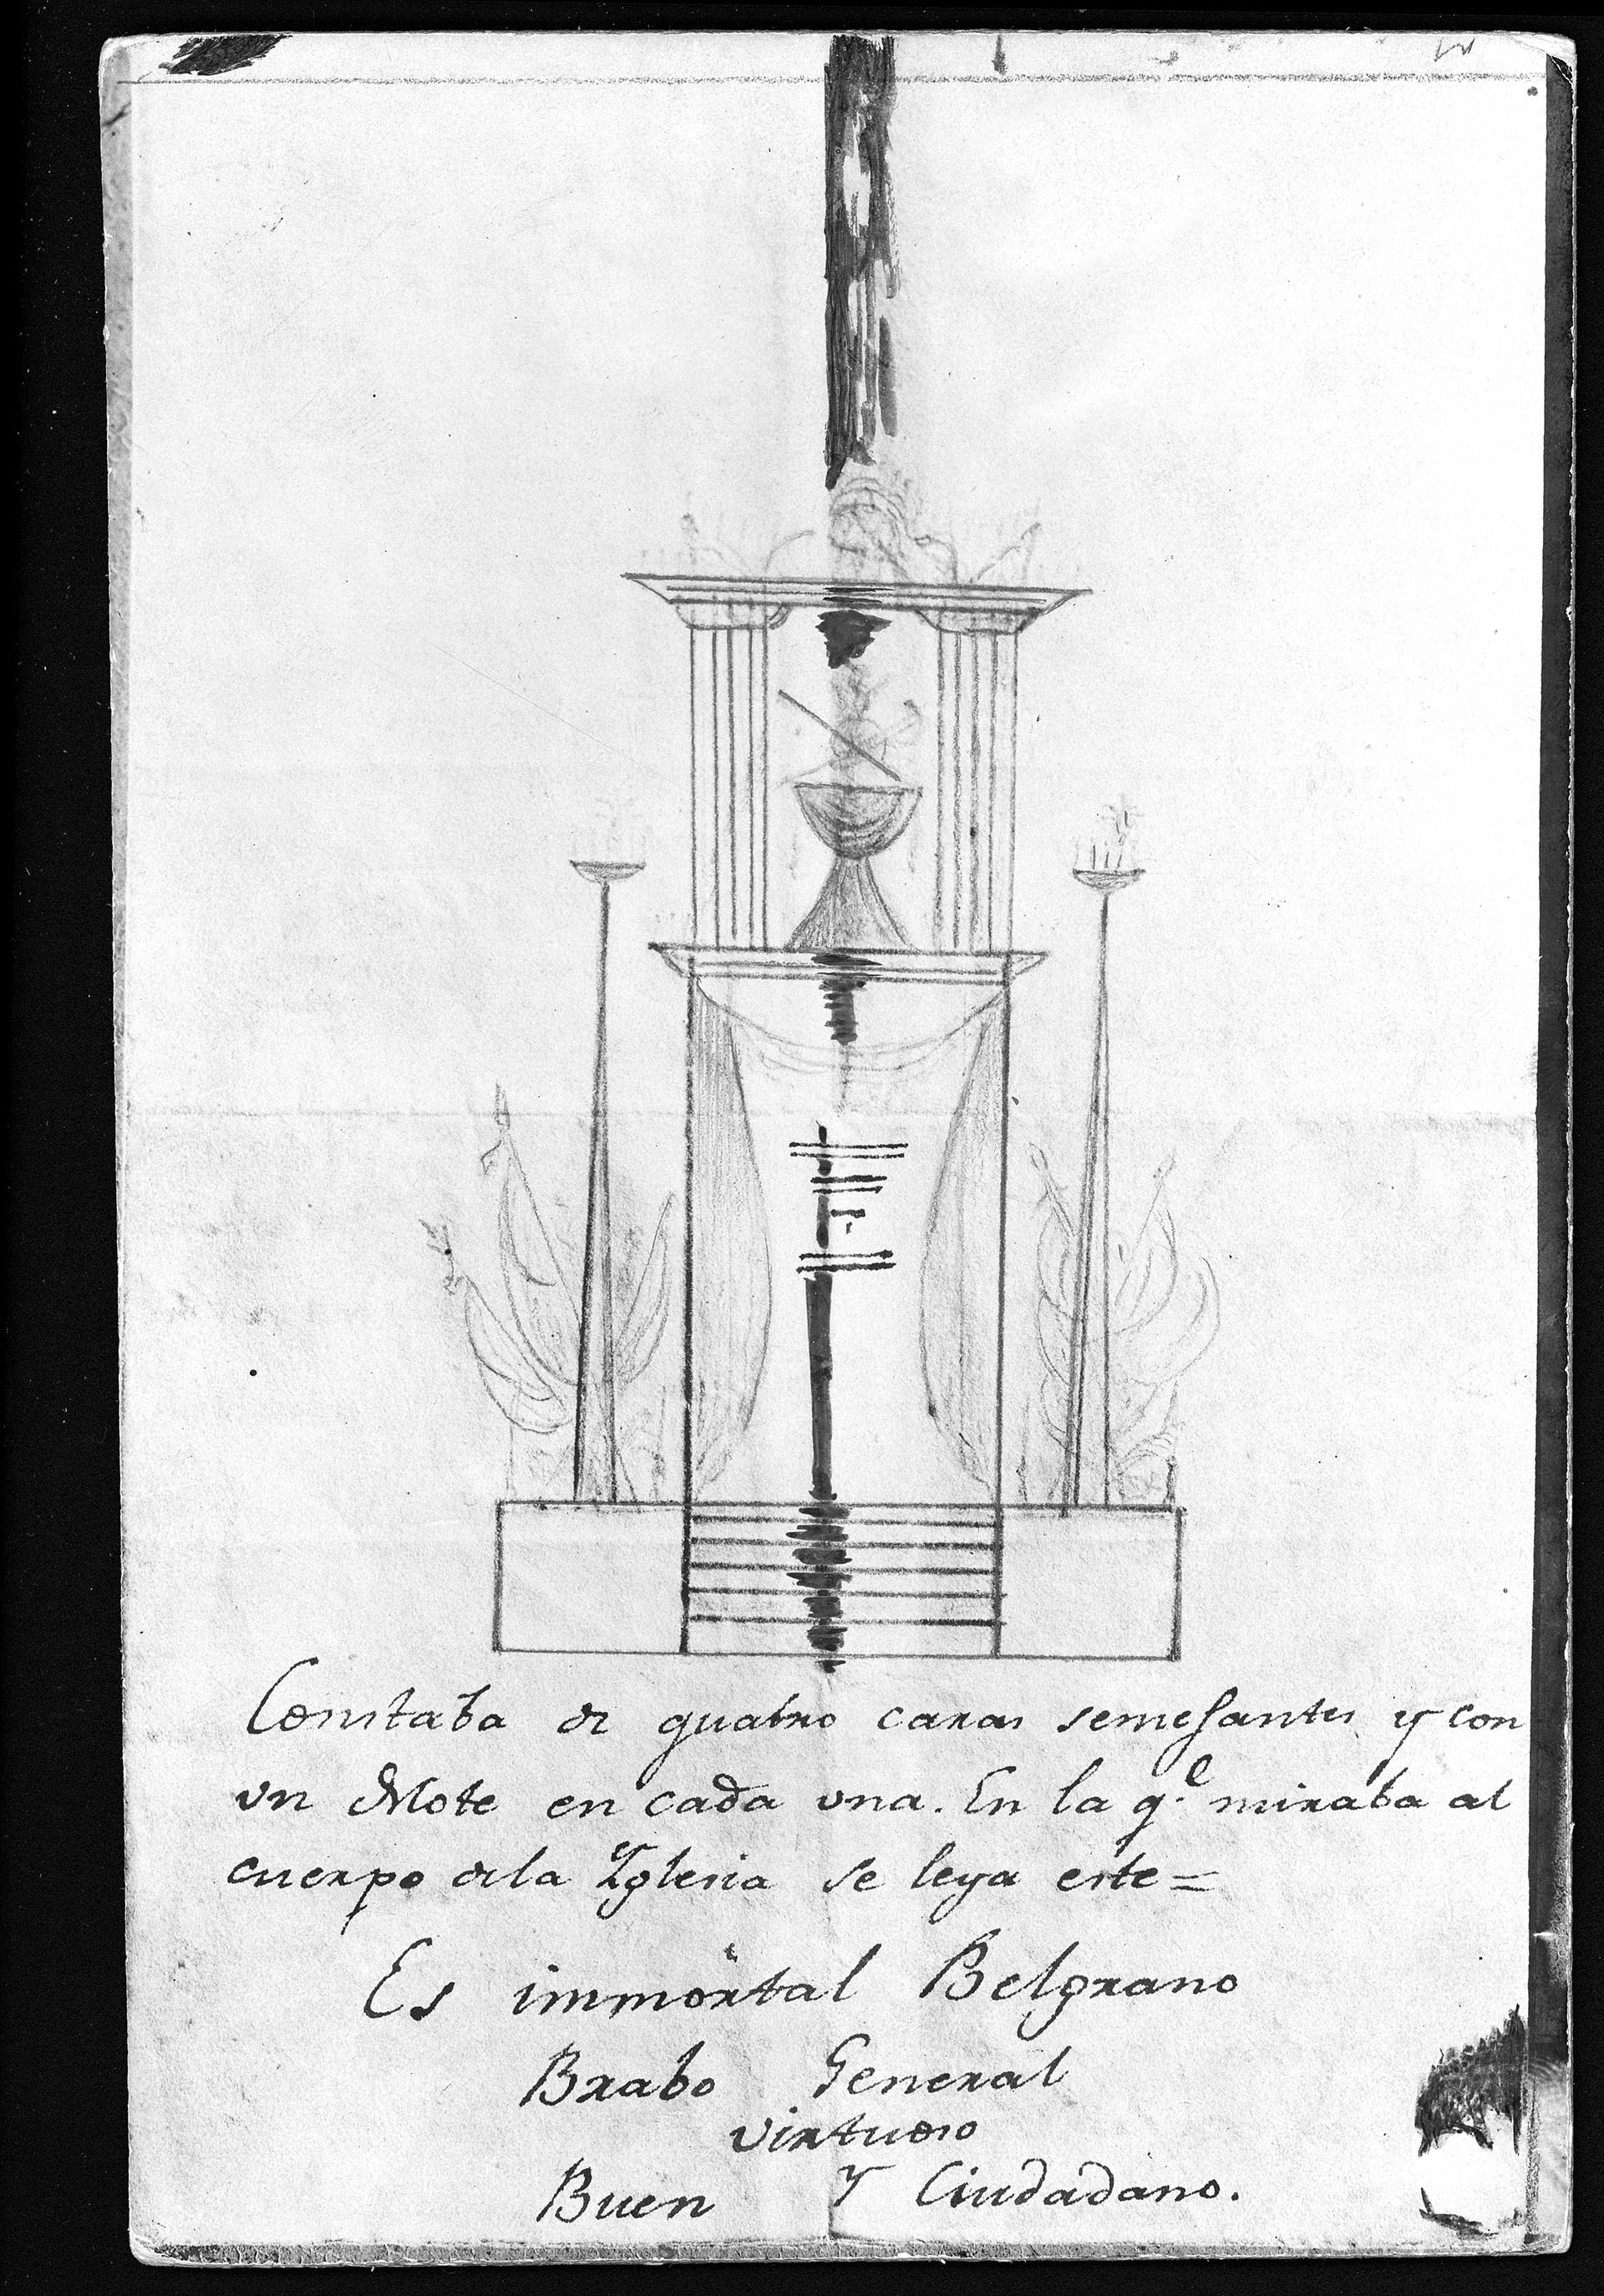 Constaba de quatro caras semejantes y con
un Mote en cada una. En la q.e miraba al
cuerpo dela Iglesia se leya este =
Es immortal Belgrano
Brabo General
virtuoso
Buen y Ciudadano.